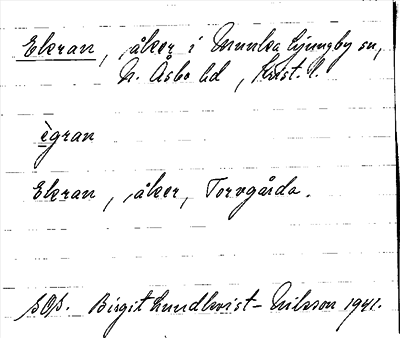 Ekran, åker i Munka Ljungby sn,
N. Åsbo hd, Krist. l.
ègran
Ekran, åker, Torvgårda.
Birgit Lundkvist-Nilsson 1941.